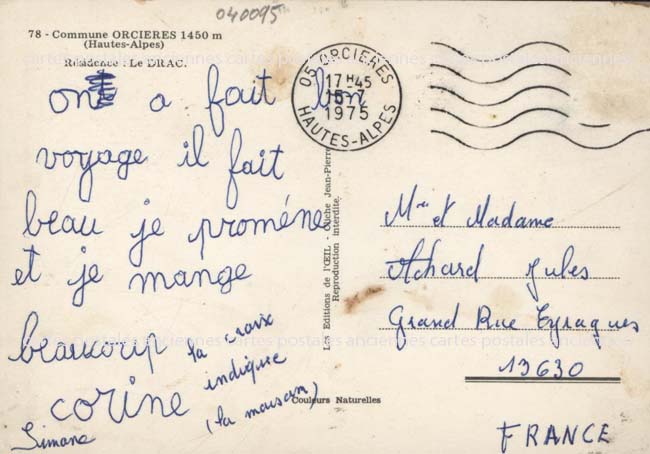 040095
78 - Commune ORCIERES 1450 m
(Hautes-Alpes)
Résidence : Le DRAC.
on a fait bon
voyage il fait
beau je proméne
et je mange
beaucoup
corine
Simone
la croix
indique
(la maison)
05 ORCIERES
17 H 45
15-7
1975
HAUTES-ALPES
Les Editions de l'ŒIL - Cliché Jean-Pierre
Reproduction interdite.
Couleurs Naturelles
Mr et Madame
Achard Jules
Grand Rue Eyragues
13630
FRANCE
cartes postales anciennes cartes postales anciennes